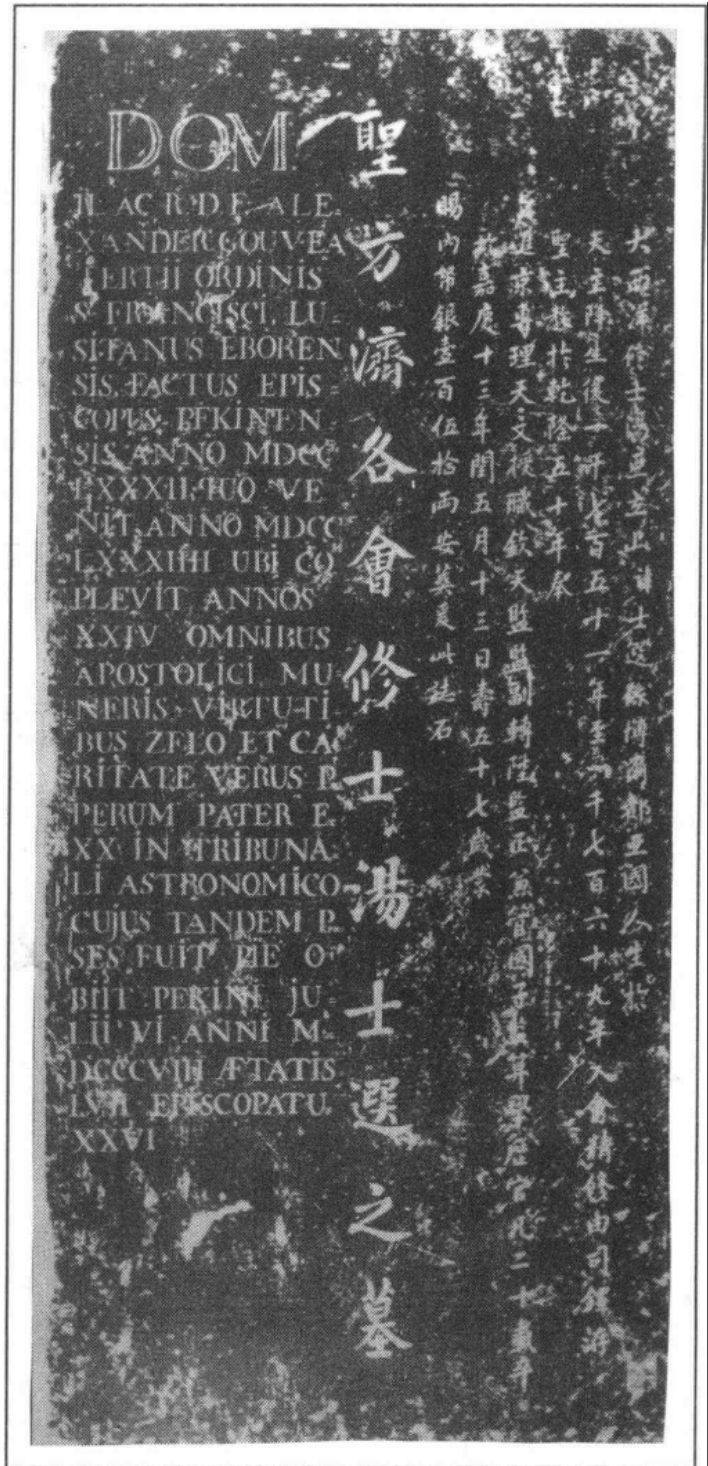 DOM
AC R D F ALE-
XANDER GOUVEA
TERTII ORDINIS
S FRANCISCI LU-
SITANUS EBOREN
SIS FACTUS EPIS-
COPUS PEKINEN
SIS ANNO MDCC
LXXXII QUO VE
NIT ANNO MDCC
LXXXIIII UBI CO
PLEVIT ANNOS
XXIV OMNIBUS
APOSTOLICI MU-
NERIS VIRTUTI-
BUS ZELO ET CA-
RITATE VERUS P
PERUM PATER E
XX IN TRIBUNA-
LI ASTRONOMICO
CUJUS TANDEM P
SES FUIT PIE O-
BIIT PEKINI JU-
LII VI ANNI M-
DCCCVIII ÆTATIS
LVII EPISCOPATU
XXVI
聖方濟各會修士湯士選之墓
大西洋修士湯亞立山士選係博爾都亞國人生於
天主降生後一千七百五十一年至一千七百六十九年入會精修由司鐸游
聖主教於乾隆五十年奉
旨進京專理天文授職欽天監監副轉陞監正兼管國子監算學官凡二十載卒
於嘉慶十三年閏五月十三日壽五十七歲蒙
賜內帑銀壹百伍拾兩安葬爰此誌石